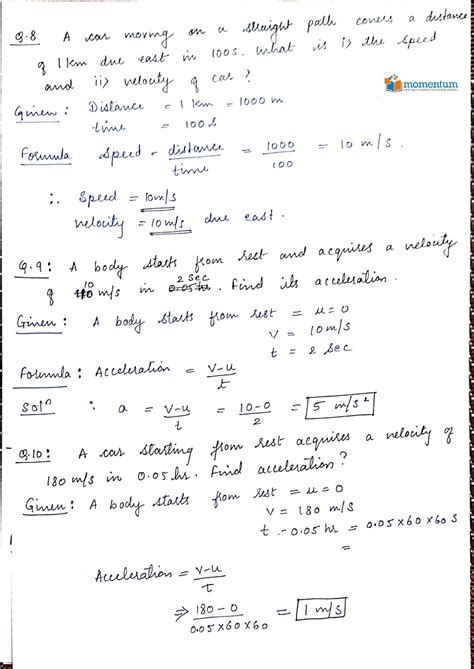 Q.8 A car moving on a straight path covers a distance
of 1 km due east in 100s. What is i> the speed
and ii> velocity of car?
momentum
Given: Distance = 1 km = 1000 m
time = 100s
Formula Speed = distance/time = 1000/100 = 10 m/s.
∴ Speed = 10m/s
velocity = 10 m/s due east.
Q.9: A body starts from rest and acquires a velocity
of 10 m/s in 2 sec. Find its acceleration.
Given: A body starts from rest = u=0
V = 10m/s
t = 2 sec
Formula: Acceleration = v-u/t
Soln ∵ a = v-u/t = 10-0/2 = 5 m/s²
Q.10: A car starting from rest acquires a velocity of
180 m/s in 0.05 hr. Find acceleration?
Given: A body starts from rest = u=0
V = 180 m/s
t - 0.05 hr = 0.05x60x60 S
=
Acceleration = v-u/t
⇒ 180-0/0.05x60x60 = 1 m/s